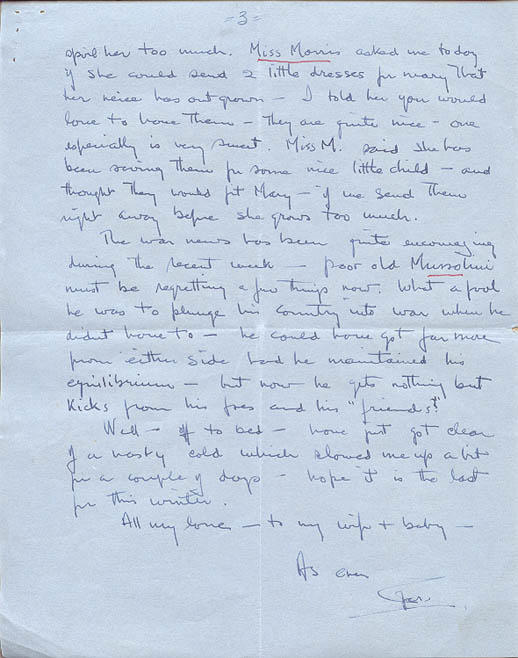 =3=
spoil her too much. Miss Morris asked me today
if she could send 2 little dresses for Mary that
her neice has outgrown – I told her you would
love to have them – They are quite nice – one
especially is very sweet. Miss M. said she has
been saving them for some nice little child – and
thought they would fit Mary – if we send them
right away before she grows too much.
The war news has been quite encouraging
during the recent week – poor old Mussolini
must be regretting a few things now. What a fool
he was to plunge his country into war when he
didn't have to – he could have got far more
from either side had he maintained his
equilibrium – but now he gets nothing but
kicks from his foes and his "friends"!
Well – off to bed – have just got clear
of a nasty cold which slowed me up a bit
for a couple of days – hope it is the last
for this winter.
All my love – to my wife + baby –
As ever